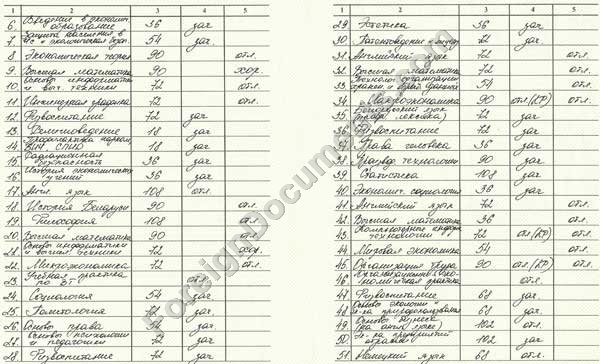 1 2 3 4 5
6. Введение в экономич. образование 36 зач
7. Защита населения в ЧС 54 зач.
8 Экономическая теория 90 отл.
9 Высшая математика 90 хор.
10 Основы информатики и выч. техники 72 отл.
11 Инженерная графика 72 отл.
12 Физвоспитание 72 зач
13 18 зач
14 СПИД 18 зач.
15 Радиационная безопасность 36 зач
16 История экономических учений 36 зач
17 Англ. язык 108 отл
18 История Беларуси 90 отл.
19. Философия 108 отл
20. Высшая математика 90 отл.
21 Основы информатики и вычисл. техники 72 хор.
22. Микроэкономика 72 отл.
23 Учебная практика по ВТ отл.
24. Социология 54 зач
25 72 зач
26 Основы права 54 зач
27 Основы психологии и педагогики 72 зач
28 Физвоспитание 72 зач
1 2 3 4 5
29. Эстетика 36 зач.
30. Патентоведение 72 зач
31. Английский язык 72 отл.
32. Высшая математика 72 отл.
33 54 отл.
34. Макроэкономика 90 отл(КР) отл.
35. Белорусский язык (проф. лексика) 72 зач.
36. Физвоспитание 72 зач
37. Права человека 36 зач.
38. технологии 90 зач
39. Статистика 108 зач.
40. Экономич. социология 36 зач
41. Английский язык 72 отл.
42. Высшая математика 36 отл.
43. Компьютерные информ. технологии 72 отл(КР) отл.
44. Мировая экономика 54 отл.
45. Организация труда 90 отл.(КР) отл.
46. практика отл.
47. Физвоспитание 68 зач
48. Основы экологии природопользования 68 зач.
49. Основы бизнеса (на англ. языке) 102 отл.
50. Эк-ка предприятий отрасли 102 зач
51. Немецкий язык 68 отл.
ForeignDocuments.com